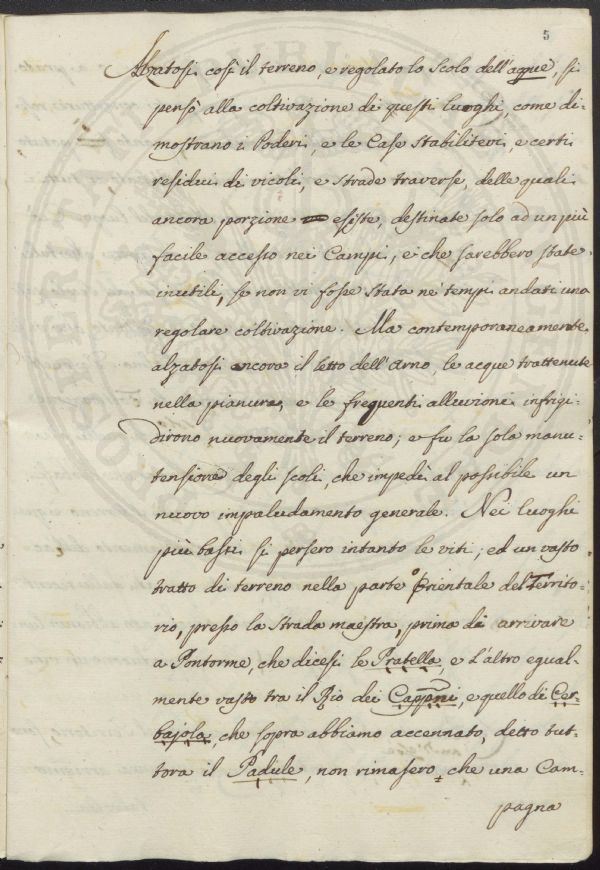 5
Alzatosi così il terreno, e regolato lo scolo dell'acque, si
pensò alla coltivazione di questi luoghi, come di=
mostrano i Poderi, e le Case stabilitevi, e certi
residui di vicoli, e strade traverse, delle quali
ancora porzione esiste, destinate solo ad un più
facile accesso nei Campi, e che sarebbero state
inutili, se non vi fosse stata ne' tempi andati una
regolare coltivazione. Ma contemporaneamente
alzatosi ancora il letto dell'Arno, le acque trattenute
nella pianura, e le frequenti alluvioni infrigi=
dirono nuovamente il terreno; e fu la sola manu=
tensione degli scoli, che impedì al possibile un
nuovo impaludamento generale. Nei luoghi
più bassi si persero intanto le viti; ed un vasto
tratto di terreno nella parte Orientale del Territo=
rio, presso la strada maestra, prima di arrivare
a Pontorme, che dicesi le Pratella, e l'altro egual=
mente vasto tra il Rio dei Capponi, e quello di Cer=
bajola, che sopra abbiamo accennato, detto tut=
tora il Padule, non rimasero, che una Cam=
pagna